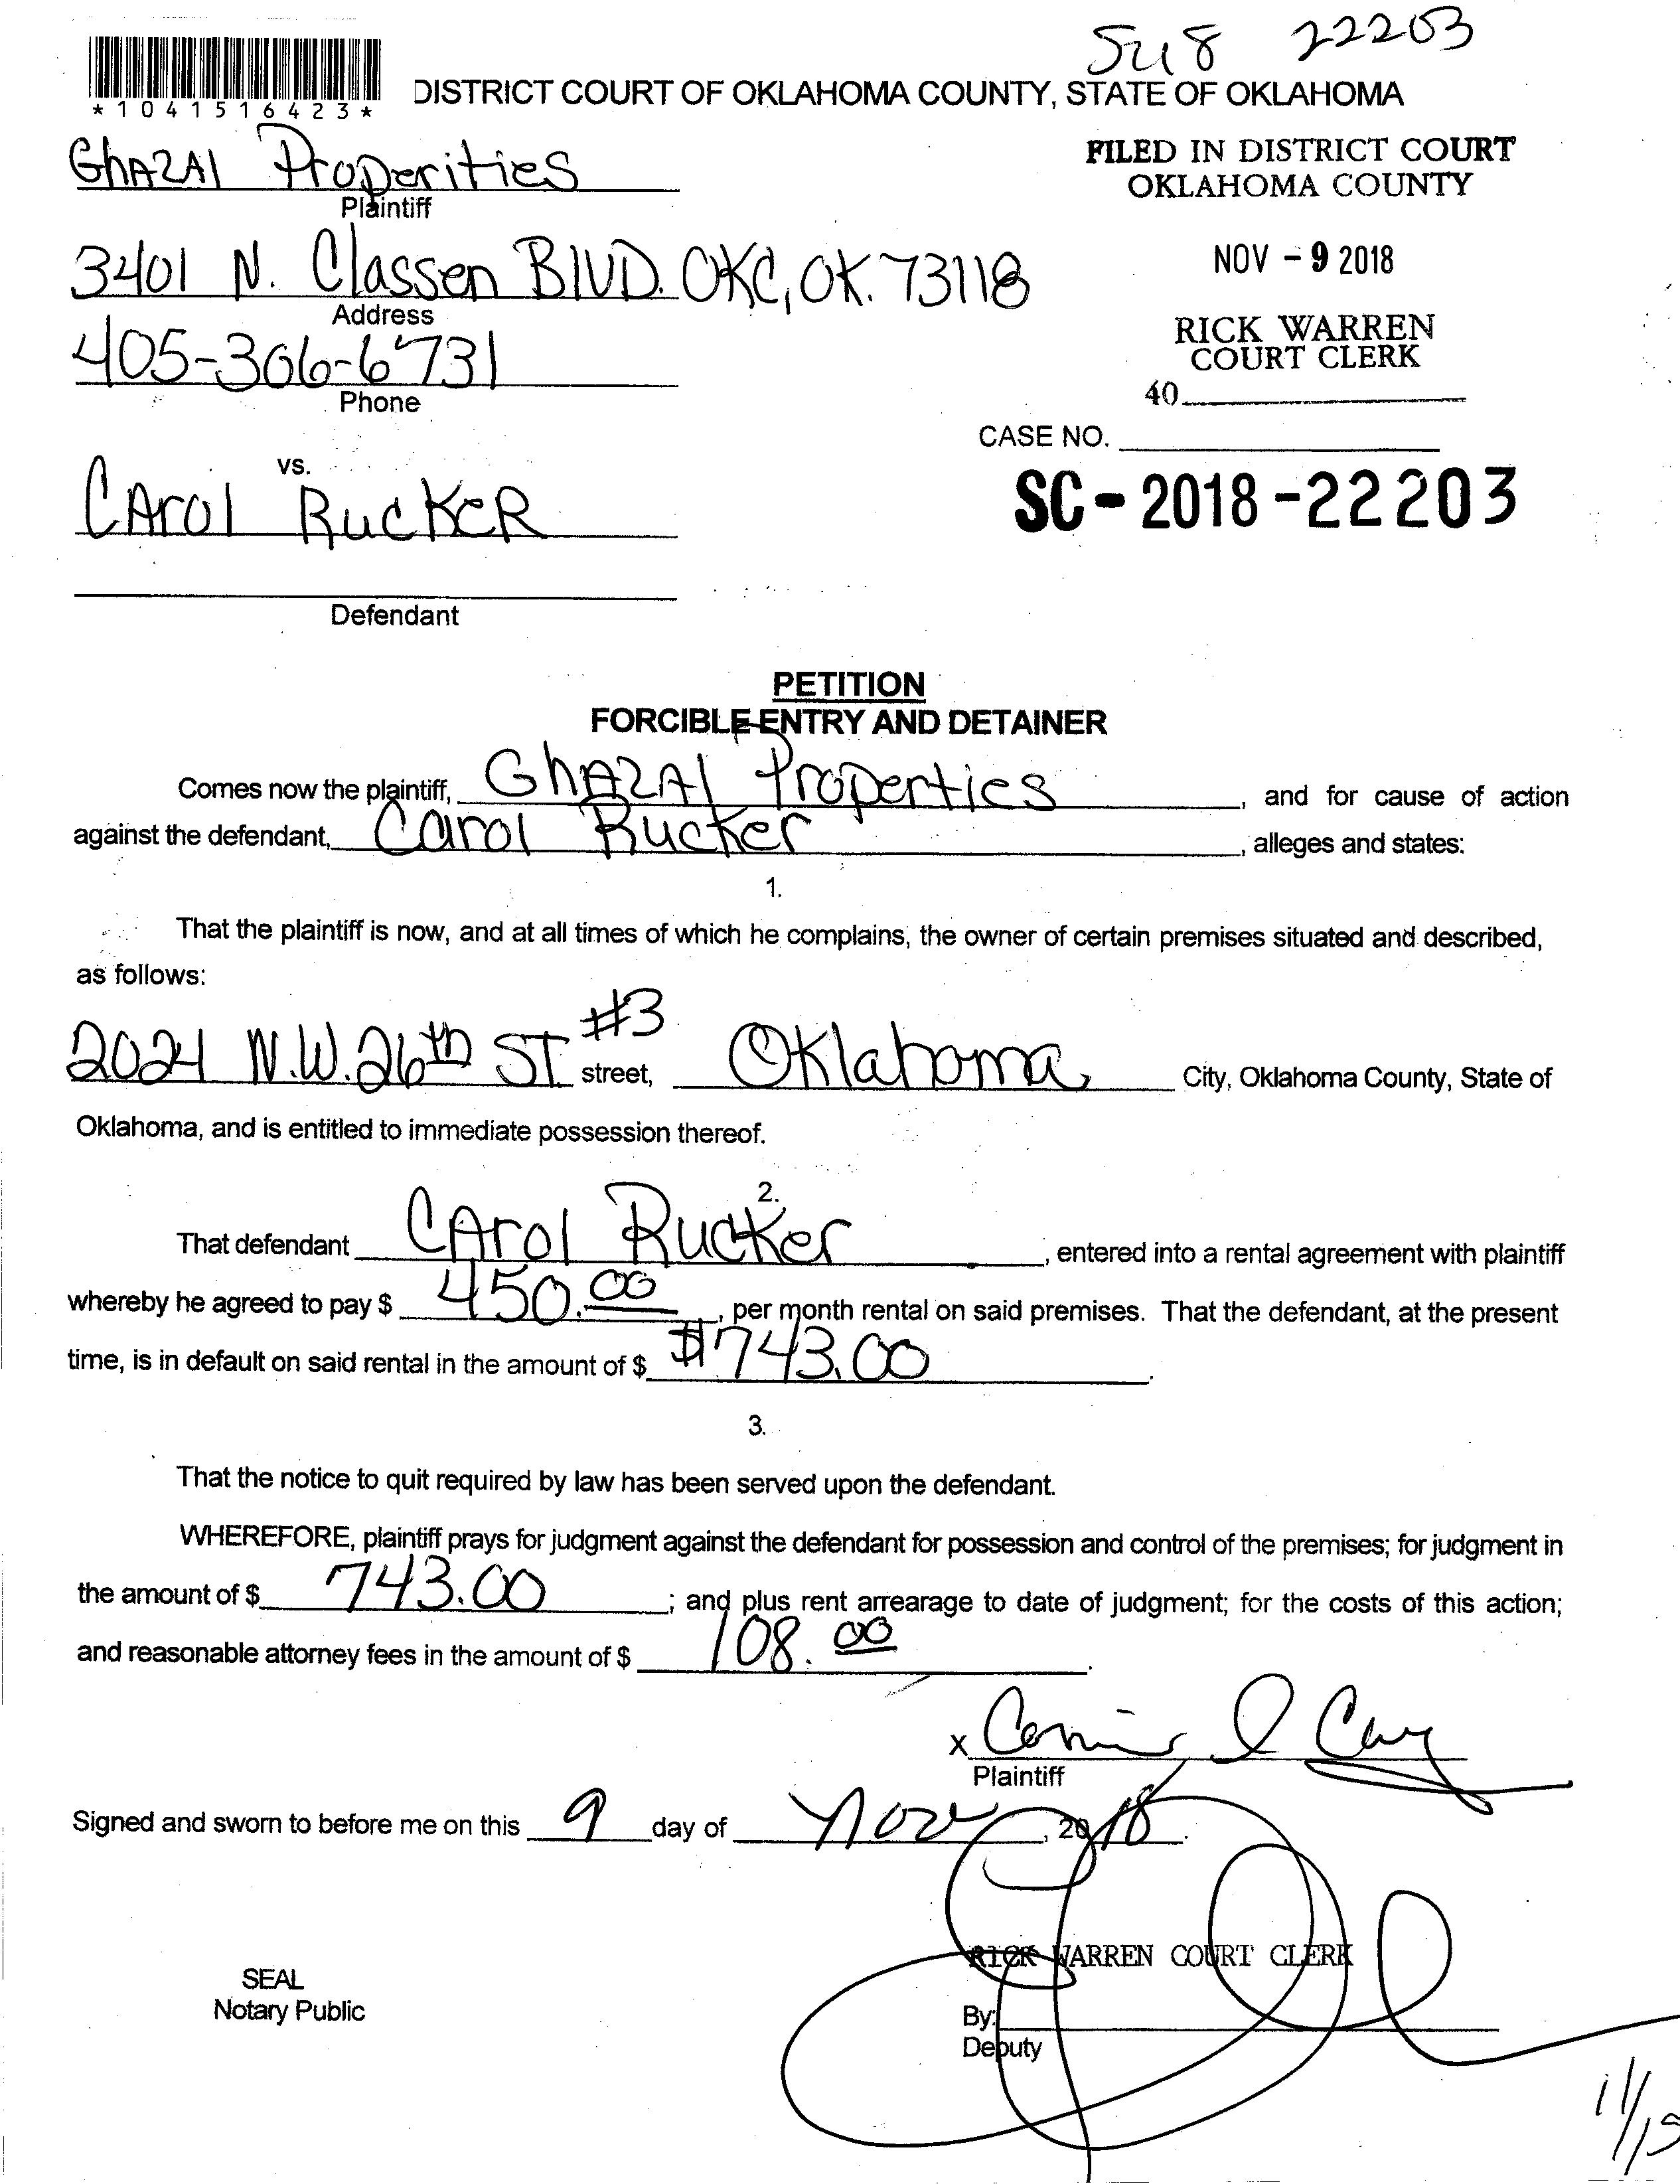 SC18 22203
*1041516423*
DISTRICT COURT OF OKLAHOMA COUNTY, STATE OF OKLAHOMA
GhAZAl Properities
Plaintiff
FILED IN DISTRICT COURT
OKLAHOMA COUNTY
3401 N. Classen BlVD. OKC, OK. 73118
Address
NOV - 9 2018
405-306-6731
Phone
RICK WARREN
COURT CLERK
40
CASE NO.
vs.
SC-2018-22203
CArol RucKeR
Defendant
PETITION
FORCIBLE ENTRY AND DETAINER
Comes now the plaintiff, GhAZAl Properties, and for cause of action
against the defendant, Carol Rucker, alleges and states:
1.
That the plaintiff is now, and at all times of which he complains, the owner of certain premises situated and described,
as follows:
2024 N.W. 26th ST. #3 street, Oklahoma City, Oklahoma County, State of
Oklahoma, and is entitled to immediate possession thereof.
2.
That defendant CArol Rucker, entered into a rental agreement with plaintiff
whereby he agreed to pay $ 450.00, per month rental on said premises. That the defendant, at the present
time, is in default on said rental in the amount of $ $743.00.
3.
That the notice to quit required by law has been served upon the defendant.
WHEREFORE, plaintiff prays for judgment against the defendant for possession and control of the premises; for judgment in
the amount of $ 743.00; and plus rent arrearage to date of judgment; for the costs of this action;
and reasonable attorney fees in the amount of $ 108.00.
x
Plaintiff
Signed and sworn to before me on this 9 day of Nov, 2018.
RICK WARREN COURT CLERK
SEAL
Notary Public
By:
Deputy